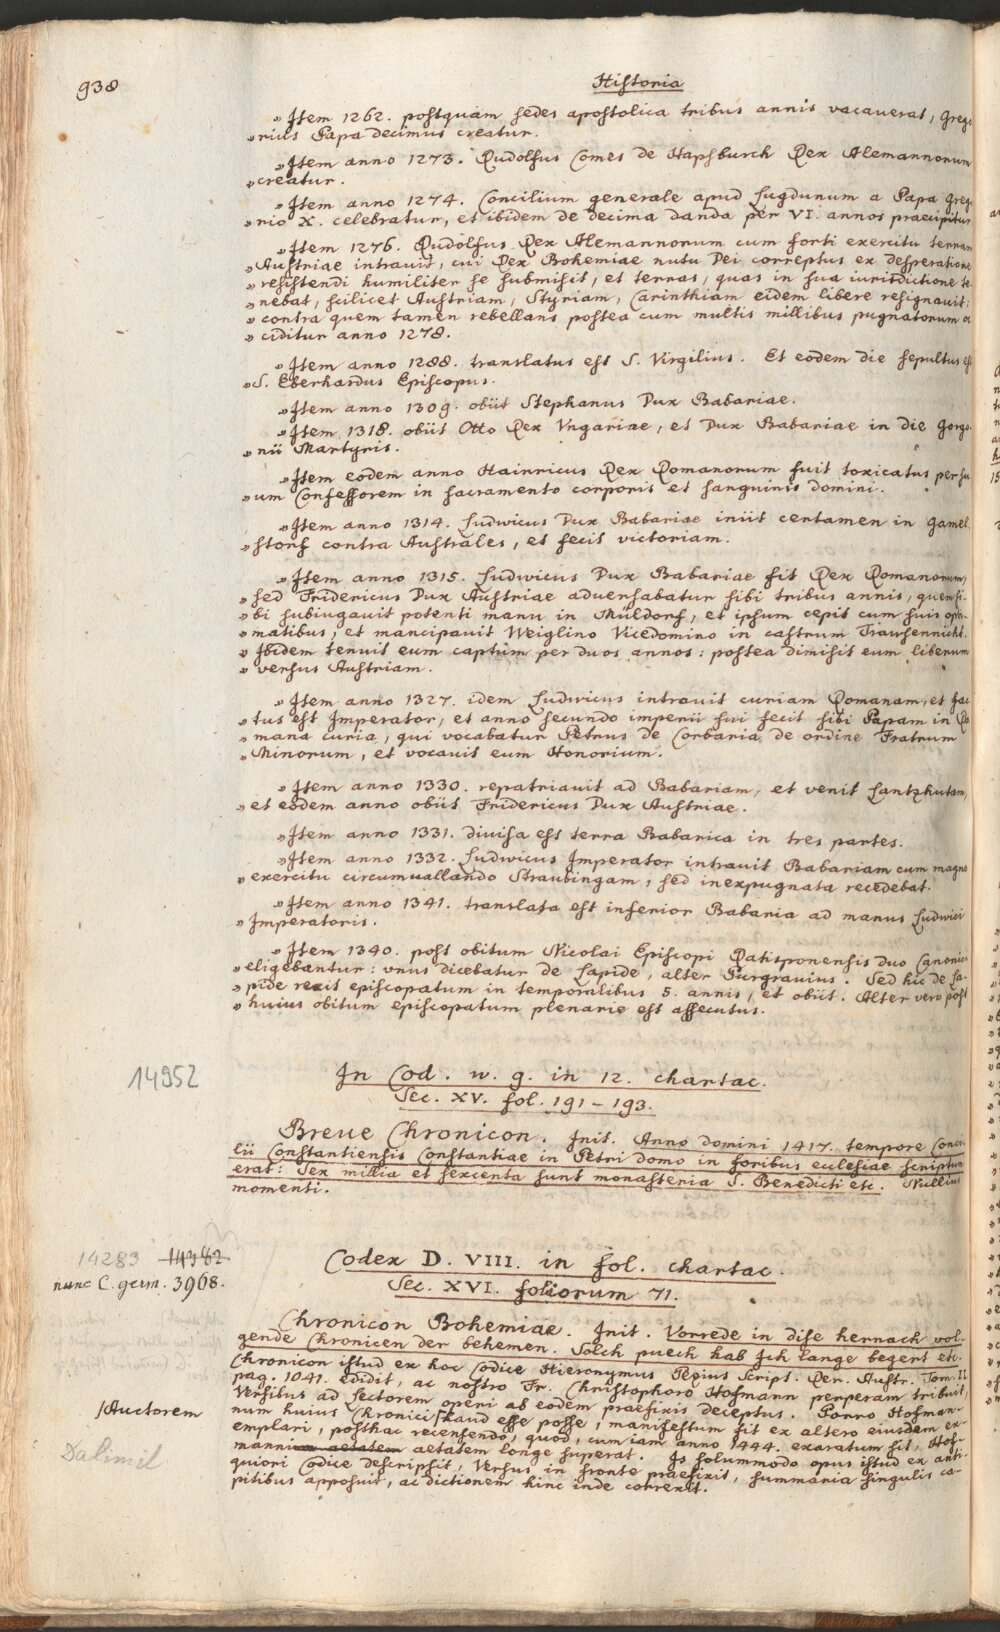 938
Historia
» Item 1262. postquam sedes apostolica tribus annis vacauerat, Grego
» rius Papa decimus creatur.
» Item anno 1273. Rudolfus Comes de Hapsburch Rex Alemannorum
» creatur.
» Item anno 1274. Concilium generale apud Lugdunum a Papa Grego
» rio X. celebratur, et ibidem de decima danda per VI. annos praecipitur
» Item 1276. Rudolfus Rex Alemannorum cum forti exercitu terram
» Austriae intrauit, cui Rex Bohemiae nutu Dei correptus ex desperatione
» resistendi humiliter se submisit, et terras, quas in sua iurisdictione te
» nebat, scilicet Austriam, Styriam, Carinthiam eidem libere resignauit:
» contra quem tamen rebellans postea cum multis millibus pugnatorum oc
» ciditur anno 1278.
» Item anno 1288. translatus est S. Virgilius. Et eodem die sepultus est
» S. Eberhardus Episcopus.
» Item anno 1309. obiit Stephanus Dux Babariae.
» Item 1318. obiit Otto Rex Vngariae, et Dux Babariae in die Gorgo
» nii Martyris.
» Item eodem anno Hainricus Rex Romanorum fuit toxicatus per su
» um Confessorem in sacramento corporis et sanguinis domini.
» Item anno 1314. Ludwicus Dux Babariae iniit certamen in Gamel
» storf contra Australes, et fecit victoriam.
» Item anno 1315. Ludwicus Dux Babariae fit Rex Romanorum,
» sed Fridericus Dux Austriae aduersabatur sibi tribus annis, quem si-
» bi subiugauit potenti manu in Müldorf, et ipsum cepit cum suis opti-
» matibus, et mancipauit Weiglino Vicedomino in castrum Trawsennicht.
» Ibidem tenuit eum captum per duos annos: postea dimisit eum liberum
» versus Austriam.
» Item anno 1327. idem Ludwicus intrauit curiam Romanam, et fac
» tus est Imperator, et anno secundo imperii sui fecit sibi Papam in Ro
» mana curia, qui vocabatur Petrus de Corbaria de ordine Fratrum
» Minorum, et vocauit eum Honorium.
» Item anno 1330. repatriauit ad Babariam, et venit Lantzhutam,
» et eodem anno obiit Fridericus Dux Austriae.
» Item anno 1331. diuisa est terra Babarica in tres partes.
» Item anno 1332. Ludwicus Imperator intrauit Babariam cum magno
» exercitu circumuallando Straubingam, sed inexpugnata recedebat.
» Item anno 1341. translata est inferior Babaria ad manus Ludwici
» Imperatoris.
» Item 1340. post obitum Nicolai Episcopi Ratisponensis duo Canonici
» eligebantur: vnus dicebatur de Lapide, alter Purgrauius. Sed hic de La-
» pide rexit episcopatum in temporalibus 5. annis, et obiit. Alter vero post
» huius obitum episcopatum plenarie est assecutus.
14952
In Cod. w. g. in 12. chartac.
Sec. XV. fol. 191 – 193.
Breue Chronicon. Init. Anno domini 1417. tempore Conci-
lii Constantiensis Constantiae in Petri domo in foribus ecclesiae scriptum
erat: Sex millia et sexcenta sunt monasteria S. Benedicti etc. Nullius
momenti.
14283 14382
nunc C. germ. 3968.
Codex D. VIII. in fol. chartac.
Sec. XVI. foliorum 71.
Chronicon Bohemiae. Init. Vorrede in dise hernach vol-
gende Chronicen der behemen. Solch puech hab Ich lange begert etc.
Chronicon istud ex hoc Codice Hieronymus Pezius Script. Rer. Austr. Tom. II.
pag. 1041. edidit, ac nostro Fr. Christophoro Hofmann perperam tribuit,
Versibus ad Lectorem operi ab eodem praefixis deceptus. Porro Hofman-
/Auctorem
num huius Chronici / haud esse posse, manifestum fit ex altero eiusdem ex-
emplari, posthac recensendo, quod, cum iam anno 1444. exaratum sit, Hof-
Dalimil
manni aetatem longe superat. Is solummodo opus istud ex anti-
quiori Codice descripsit, Versus in fronte praefixit, summaria singulis ca-
pitibus apposuit, ac dictionem hinc inde correxit.